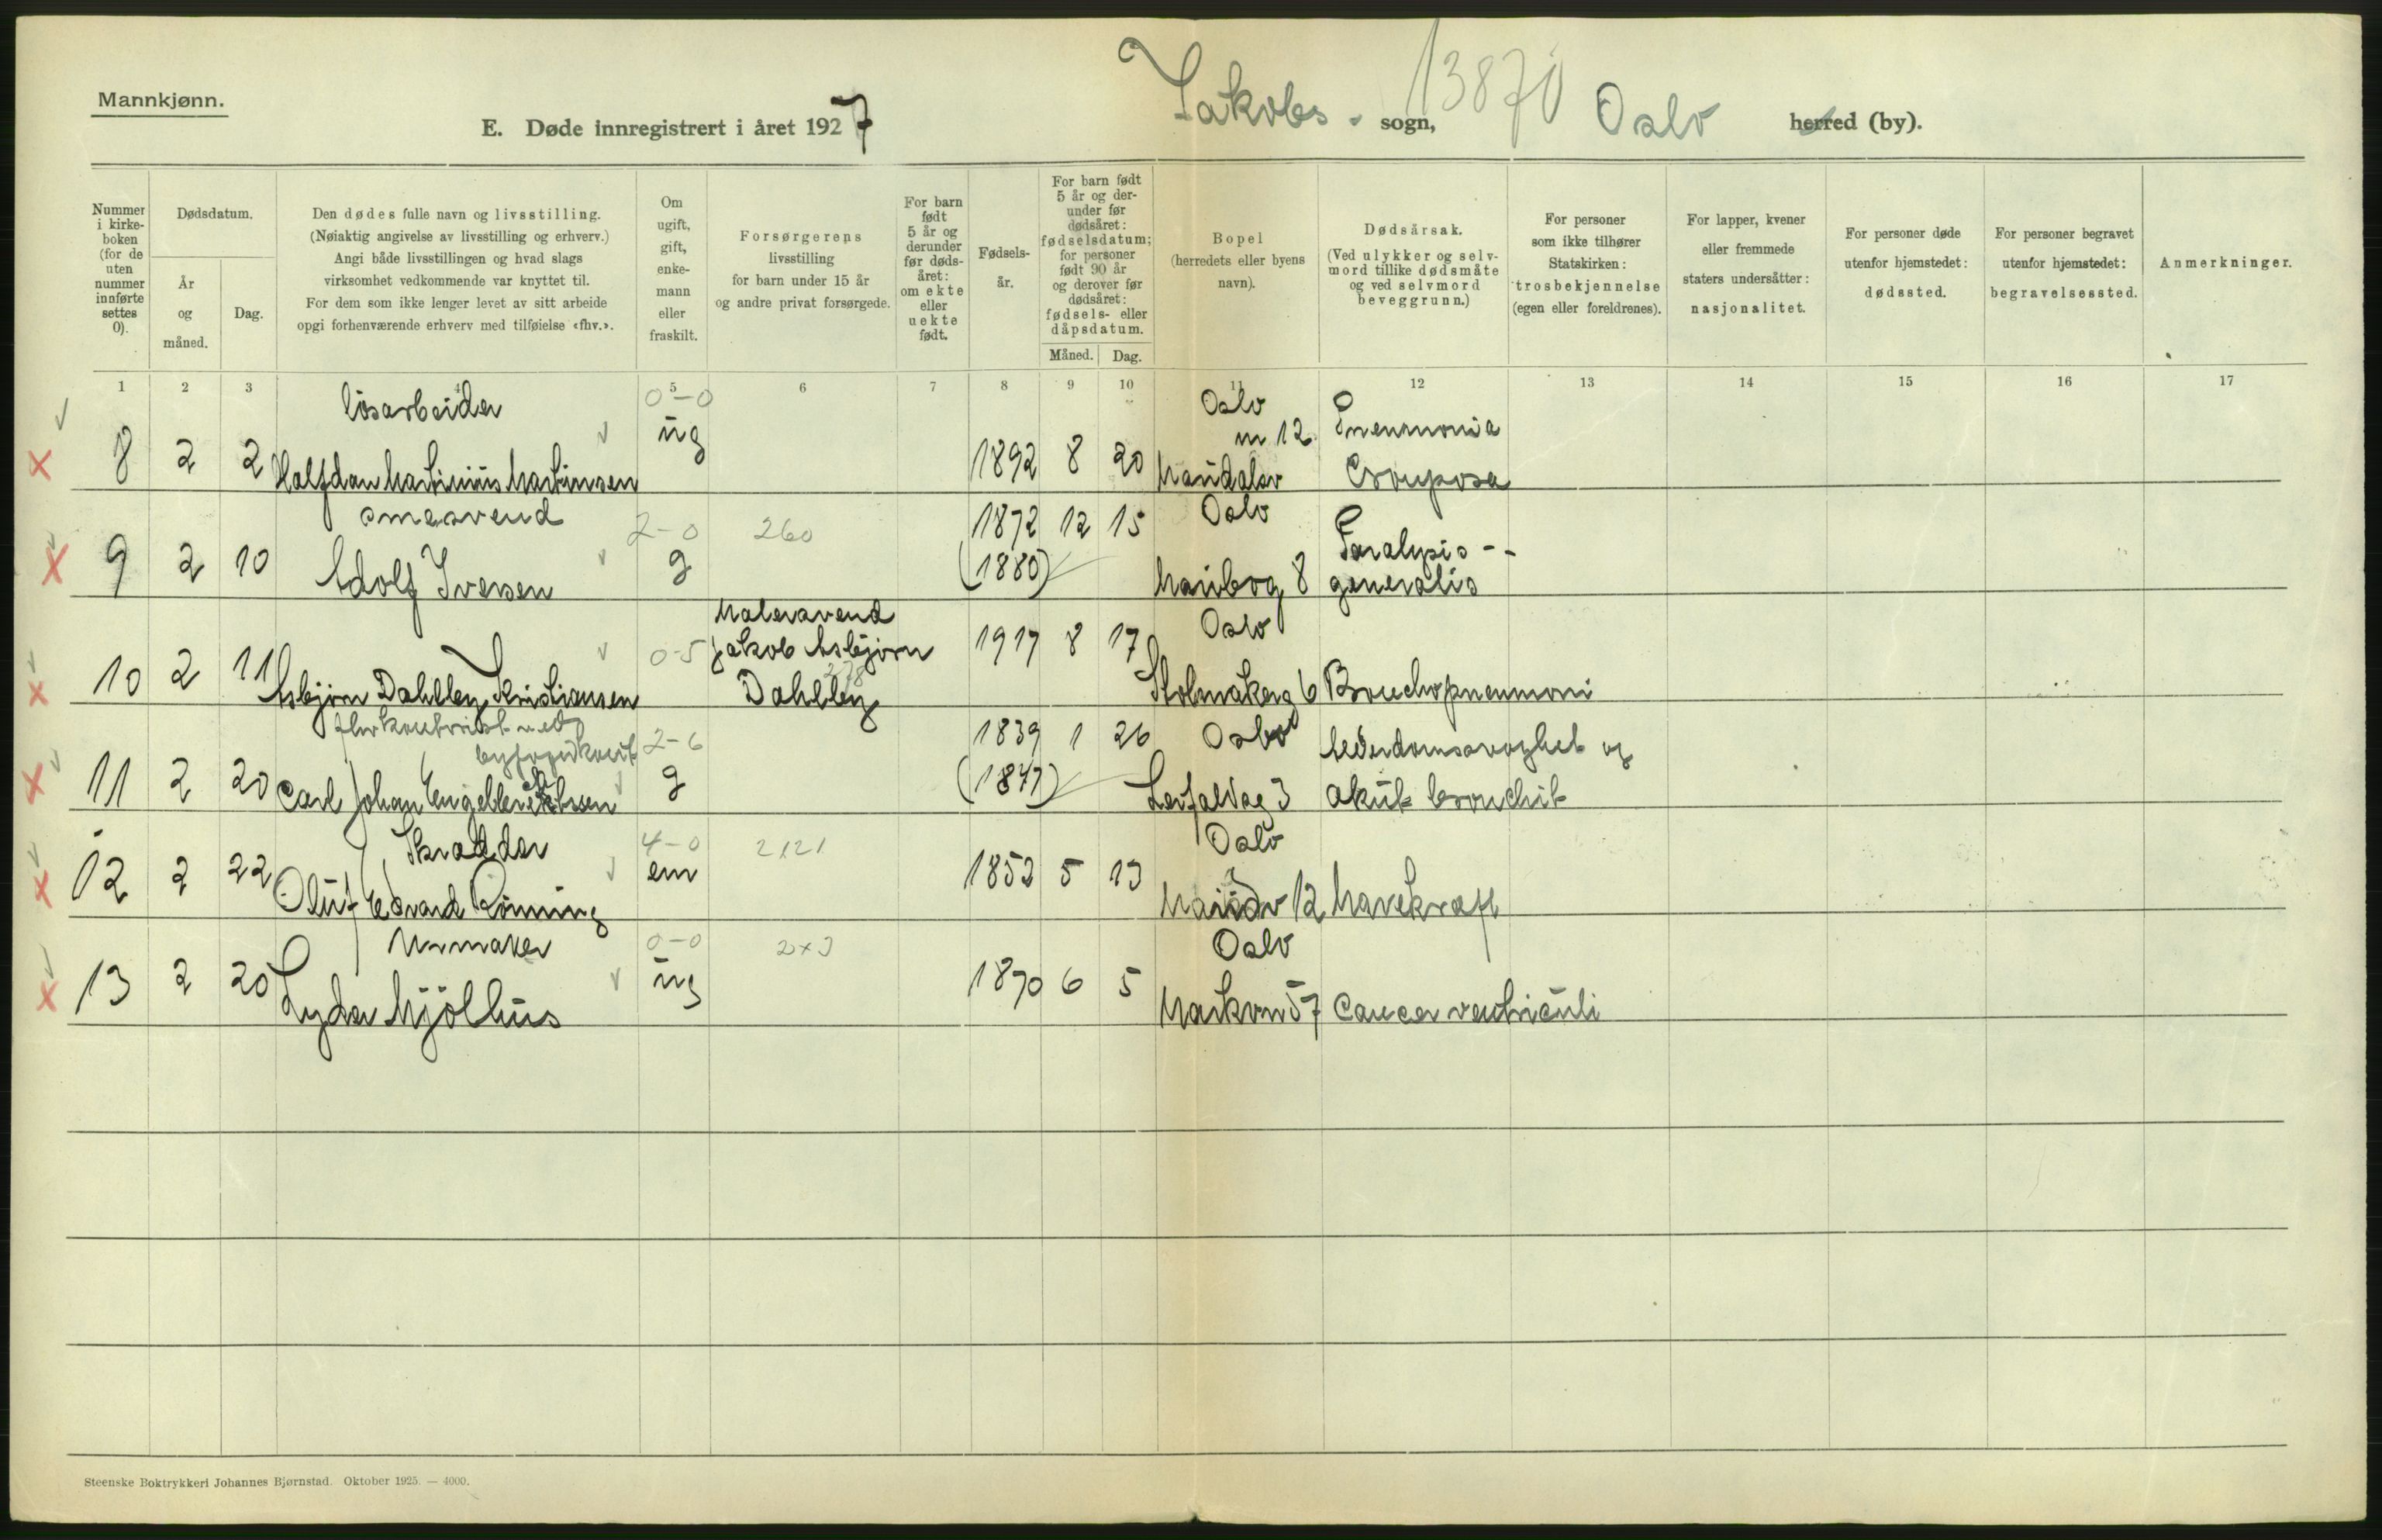 Mannkjønn.
E. Døde innregistrert i året 1927
Jakobs - sogn, 13870 Oslo herred (by).
Nummer i kirkeboken (for de uten nummer innførte settes 0).
Dødsdatum.
År og måned.
Dag.
Den dødes fulle navn og livsstilling.
(Nøiaktig angivelse av livsstilling og erhverv.)
Angi både livsstillingen og hvad slags
virksomhet vedkommende var knyttet til.
For dem som ikke lenger levet av sitt arbeide
opgi forhenværende erhverv med tilføielse «fhv.».
Om ugift, gift, enkemann eller fraskilt.
Forsørgerens
livsstilling
for barn under 15 år
og andre privat forsørgede.
For barn født 5 år og derunder før dødsåret: om ekte eller uekte født.
Fødselsår.
For barn født 5 år og derunder før dødsåret: fødselsdatum; for personer født 90 år og derover før dødsåret: fødsels- eller dåpsdatum.
Måned.
Dag.
Bopel
(herredets eller byens
navn).
Dødsårsak.
(Ved ulykker og selvmord tillike dødsmåte og ved selvmord beveggrunn.)
For personer
som ikke tilhører
Statskirken:
trosbekjennelse
(egen eller foreldrenes).
For lapper, kvener
eller fremmede
staters undersåtter:
nasjonalitet.
For personer døde
utenfor hjemstedet:
dødssted.
For personer begravet
utenfor hjemstedet:
begravelsessted.
Anmerkninger.
1 2 3 4 5 6 7 8 9 10 11 12 13 14 15 16 17
løsarbeider 0-0 Oslo
8 2 2 Halfdan Martinius Martinsen ug 1892 8 20 Maridalsv m 12 Pneumonia Crouposa
smedsvend 2-0 260 Oslo
9 2 10 Adolf Iversen g 1872 12 15 (1880) Maribog 8 Paralysis -- generalis
10 2 11 Asbjørn Dahlby Kristiansen 0-5 Malersvend Jakob Asbjørn Dahlby 1917 8 17 Oslo Stolmakerg 6 Bronchopneumoni
fhv kontorist ved byfogdkont 2-6
11 2 20 Carl Johan Engelbrektssen g 1839 1 26 (1847) Oslo 3 Alderdomssvaghet og akut bronchit
Skrædder 4-0 2121 Oslo
12 2 22 Oluf Edvard Rønning em 1852 5 13 12 Mavekræft
Urmaker 0-0 2x3 Oslo
13 2 20 Lyder Mjölhus ug 1870 6 5 Markvn 57 Cancer ventriculi
Steenske Boktrykkeri Johannes Bjørnstad. Oktober 1925. — 4000.